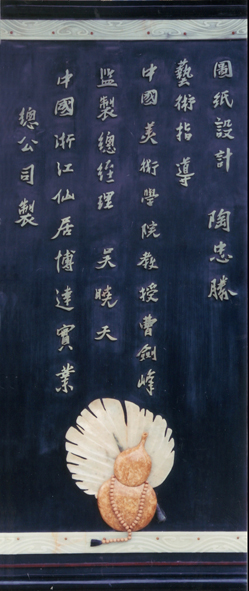 圖紙設計 陶忠勝
藝術指導
中國美術學院教授曹劍峰
監製總經理 吴曉天
中國浙江仙居博達實業
總公司製